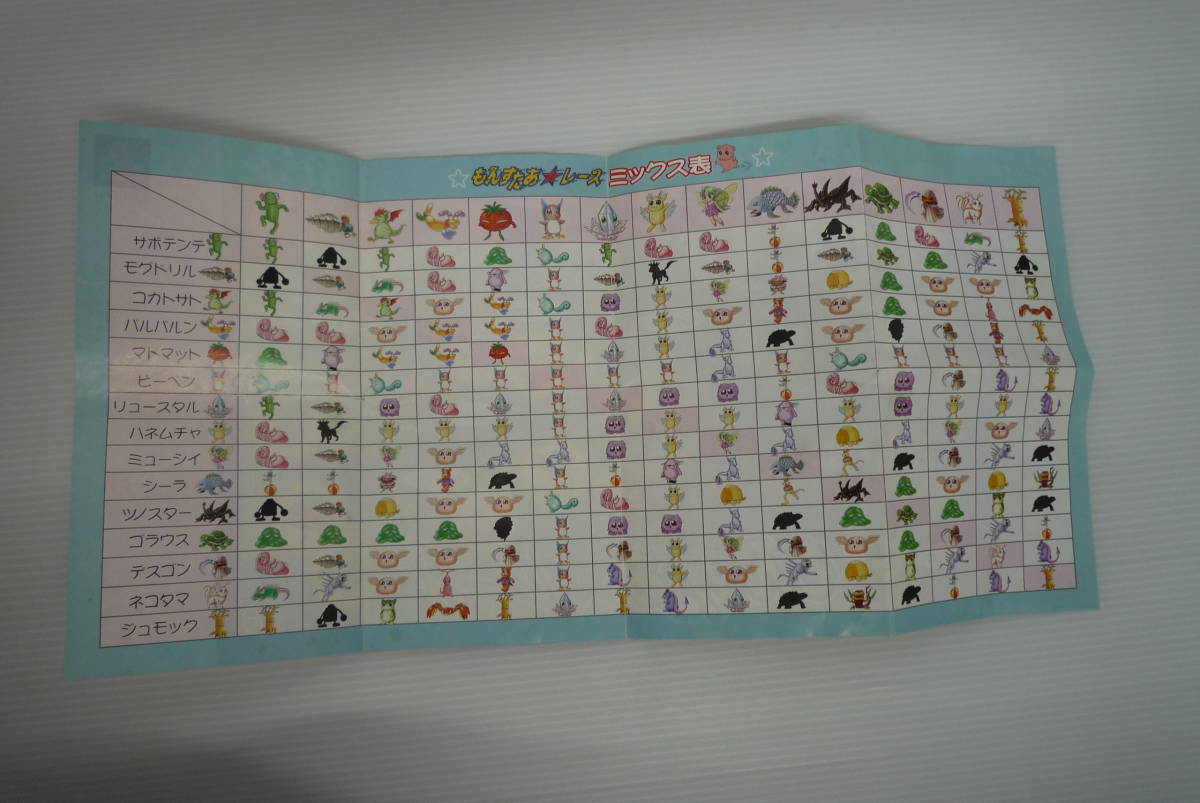 もんすたあ★レース ミックス表
サボテンテ
モグドリル
コカトサト
バルバルン
マトマット
ピーペン
リコースタル
ハネムチャ
ミューシィ
シーラ
ツノスター
ゴラウス
デスゴン
ネコタマ
ジュモック